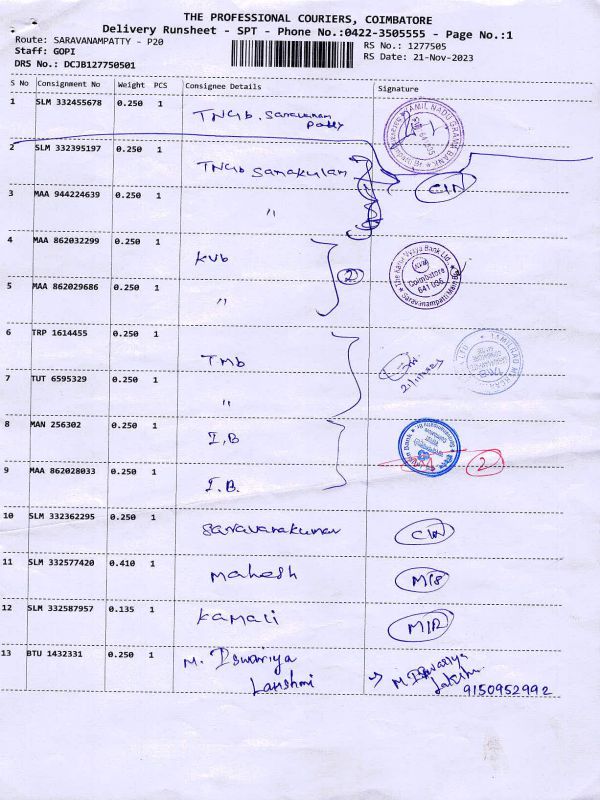 THE PROFESSIONAL COURIERS, COIMBATORE
Delivery Runsheet - SPT - Phone No.:0422-3505555 - Page No.:1
Route: SARAVANAMPATTY - P20
RS No.: 1277505
Staff: GOPI
RS Date: 21-Nov-2023
DRS No.: DCJB127750501
S No Consignment No Weight PCS Consignee Details Signature
1 SLM 332455678 0.250 1 TNGb. Saravanam
patty
TAMIL NADU GRAMA BANK
2 SLM 332395197 0.250 1 TNGb Samakulam
3 MAA 944224639 0.250 1 "
4 MAA 862032299 0.250 1 KVb
2
The Karur Vysya Bank Ltd.
KVB
Coimbatore
641 035
5 MAA 862029686 0.250 1 "
6 TRP 1614455 0.250 1 TMb
7 TUT 6595329 0.250 1 "
8 MAN 256302 0.250 1 I.B
9 MAA 862028033 0.250 1 I.B.
2
10 SLM 332362295 0.250 1 Saravanakumar
11 SLM 332577420 0.410 1 Mahesh
12 SLM 332587957 0.135 1 Kamali
13 BTU 1432331 0.250 1 M. Iswariya
Lakshmi
9150952992